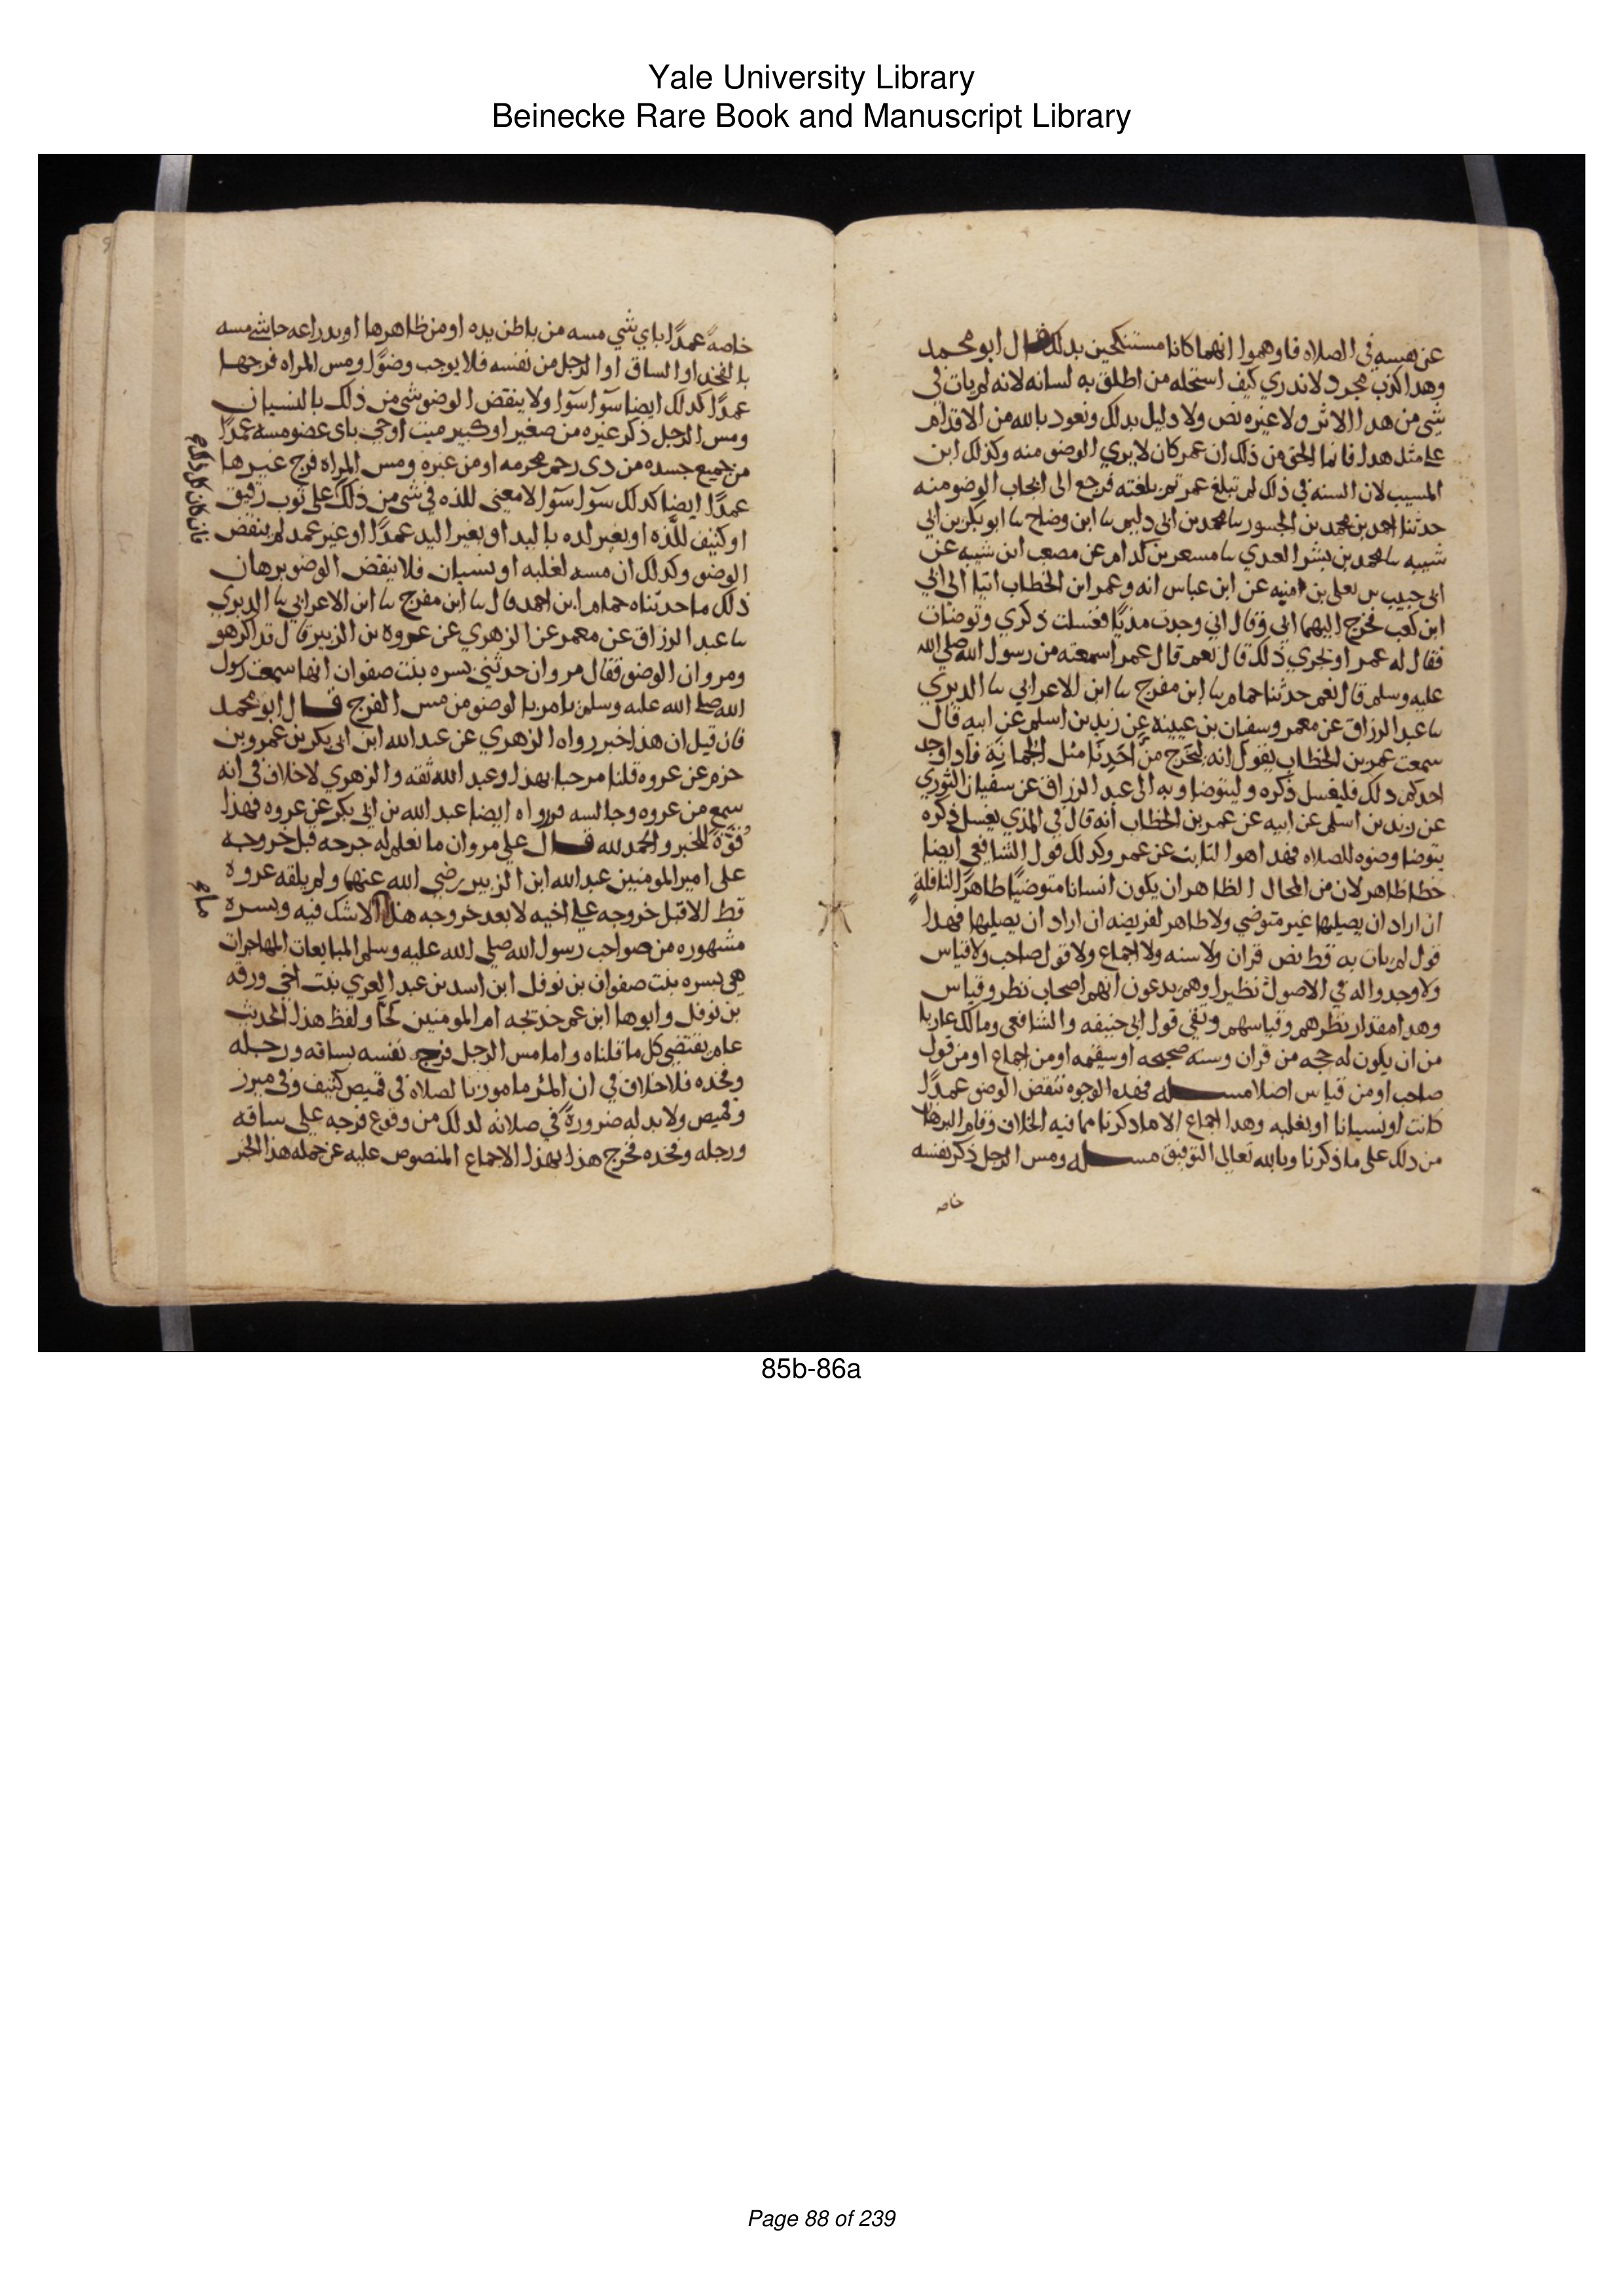 Yale University Library
Beinecke Rare Book and Manuscript Library
عن نفسه في الصلاه فاوهموا انهما كانا مستنكحين بدلك قال ابو محمد
وهدا كذب مجرد لاندري كيف استحله من اطلق به لسانه لانه لم يات في
شي من هدا الاثر ولا غيره نص ولا دليل بدلك ونعود بالله من الاقدام
على مثل هدا فانما الحق من ذلك ان عمر كان لايري الوضو منه وكذلك ابن
المسيب لان السنه في ذلك لم تبلغ عمر ثم بلغته فرجع الى ايجاب الوضو منه
حدثنا احمد بن محمد بن الجسور ٮا محمد بن ابي دليم ٮا ابن وضاح ٮا ابو بكر بن ابي
شيبه ٮا محمد بن بشر العبدي ٮا مسعر بن كدام عن مصعب ابن شيبه عن
ابي حبيب بن يعلى بن امنيه عن ابن عباس انه وعمر ابن الخطاب اتيا الى ابي
ابن كعب فخرج اليهما ابي وقال اني وجدت مذيًا فغسلت ذكري وتوضات
فقال له عمر او يجزي ذلك قال نعم قال عمر اسمعته من رسول الله صلي الله
عليه وسلم قال نعم حدثنا حمام ٮا ابن مفرج ٮا ابن الاعرابي ٮا الدبري
ٮا عبد الرزاق عن معمر وسفيان بن عيينه عن زيد بن اسلم عن ابيه قال
سمعت عمر بن الخطاب يقول انه ليخرج من احدنا مثل الجمانة فادا وجد
احدكم دلك فليغسل ذكره وليتوضا وبه الى عبد الرزاق عن سفيان الثوري
عن زيد بن اسلم عن ابيه عن عمر بن الخطاب انه قال في المذي يغسل ذكره
يتوضا وضوه للصلاه فهدا هوا الثابت عن عمر وكدلك قول الشافعي ايضا
خطا ظاهر لان من المحال الظاهر ان يكون انسانا متوضيًا طاهرًا لنافلةٍ
ان اراد ان يصليها غير متوضي ولا طاهر لفريضه ان اراد ان يصليها فهدا
قول لم يات به قط نص قران ولا سنه ولا اجماع ولا قول صاحب ولا قياس
ولا وجدوا له في الاصول نظيرا وهم يدعون انهم اصحاب نظر وقياس
وهدا مقدار نظرهم وقياسهم وبقي قول ابي حنيفه والشافعي ومالك عاريا
من ان يكون له حجه من قران وسنه صحيحه او سقيمه او من اجماع او من قول
صاحب او من قياس اصلا مسـله فهده الوجوه تنقض الوضو عمدًا
كانت او نسيانا او بغلبه وهدا اجماع الا ما دكرنا مما فيه الخلاف وقام البرهان
من دلك على ما ذكرنا وبالله تعالى التوفيق مسـله ومس الرجل ذكر نفسه
خاصه
خاصه عمدًا باي شي مسه من باطن يده او من ظاهرها او بدراعه حاشي مسه
بالفخد او الساق او الرجل من نفسه فلا يوجب وضوًا ومس المراه فرجها
عمدًا كدلك ايضا سوا سوا ولا ينقض الوضو شي من ذلك بالنسيان
ومس الرجل ذكر غيره من صغير او كبير ميت او حي باى عضو مسه عمدًا
من جميع جسده من دى رحم محرمه او من غيره ومس المراه فرج غيرها
عمدًا ايضا كدلك سوا سوا لا معنى للذه في شي من ذلك على ثوب رقيق
او كثيف للذه او بغير لده باليد او بغير اليد عمدًا او غير عمد لم ينقض
الوضو وكدلك ان مسه لغلبه او نسيان فلا ينقض الوضو برهان
ذلك ما حدثناه حمام ابن احمد قال ٮا ابن مفرج ٮا ابن الاعرابي ٮا الدبري
ٮا عبد الرزاق عن معمر عن الزهري عن عروه بن الزبير قال تداكر هو
ومروان الوضو فقال مروان حدثتني بسره بنت صفوان انها سمعت رسول
الله صلى الله عليه وسلم يامر بالوضو من مس الفرج قال ابو محمد
فان قيل ان هذا خبر رواه الزهري عن عبد الله ابن ابى بكر بن عمرو بن
حزم عن عروه قلنا مرحبا بهذا وعبد الله ثقه والزهري لا خلاف في انه
سمع من عروه وجالسه فرواه ايضا عبد الله بن ابى بكر عن عروه فهذا
قوةٌ للخبر والحمد لله قال علي مروان ما نعلم له جرحه قبل خروجه
على امير المومنين عبد الله ابن الزبير رضي الله عنهما ولم يلقه عروه
قط الا قبل خروجه على اخيه لا بعد خروجه هذا الا شك فيه وبسره
مشهوره من صواحب رسول الله صلي الله عليه وسلم المبايعات المهاجرات
هى بسره بنت صفوان بن نوفل ابن اسد بن عبد العزي بنت اخى ورقه
بن نوفل وابوها ابن عم خديجه ام المومنين لحا ولفظ هذا الحديث
عام يقتضى كل ما قلناه واما مس الرجل فرج نفسه بساقه ورجله
وفخده فلا خلاف في ان المر مامور بالصلاه فى قميص كثيف وفى ميزر
وقميص ولا بد له ضرورةً في صلاته لدلك من وقوع فرجه على ساقه
ورجله وفخده فخرج هذا بهذا الاجماع المنصوص عليه عن جمله هذا الخبر
85b-86a
Page 88 of 239